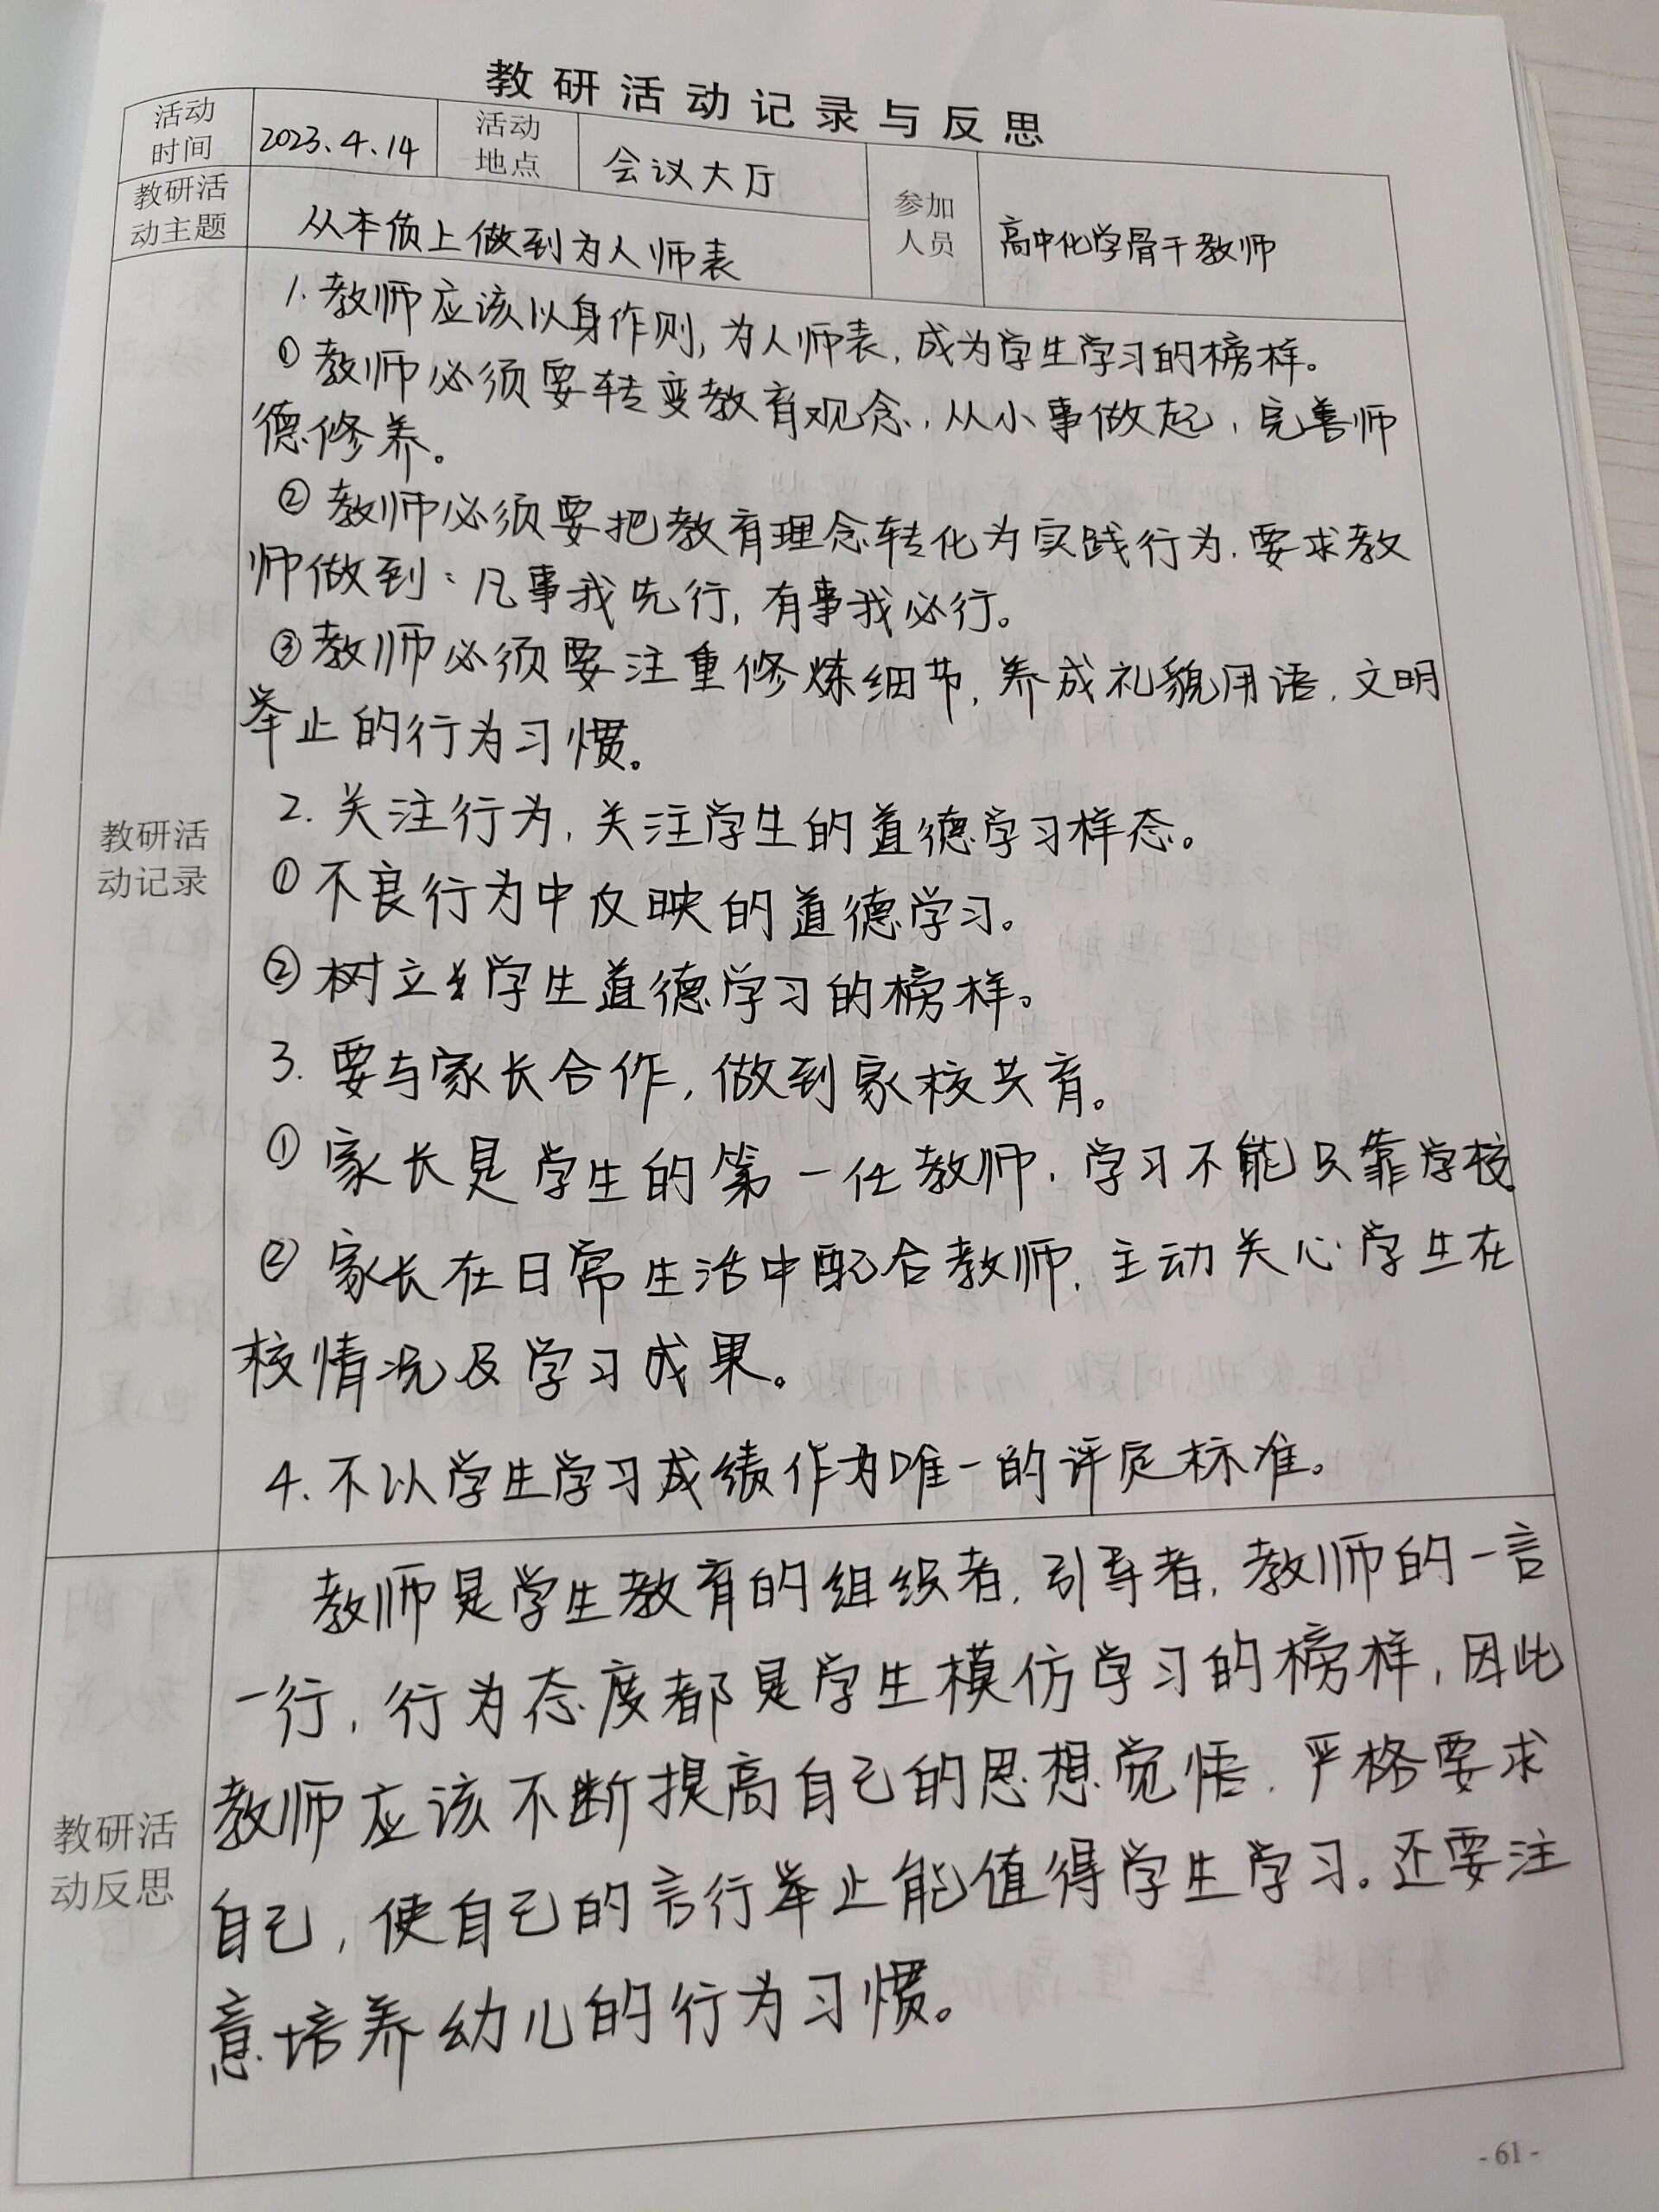 教研活动记录与反思
活动时间
2023.4.14
活动地点
会议大厅
参加人员
高中化学骨干教师
教研活动主题
从本质上做到为人师表
教研活动记录
1. 教师应该以身作则,为人师表,成为学生学习的榜样。
①教师必须要转变教育观念,从小事做起,完善师
德修养。
②教师必须要把教育理念转化为实践行为.要求教
师做到:凡事我先行,有事我必行。
③教师必须要注重修炼细节,养成礼貌用语,文明
举止的行为习惯。
2. 关注行为,关注学生的道德学习样态。
①不良行为中反映的道德学习。
②树立学生道德学习的榜样。
3. 要与家长合作,做到家校共育。
①家长是学生的第一任教师,学习不能只靠学校。
②家长在日常生活中配合教师,主动关心学生在
校情况及学习成果。
4. 不以学生学习成绩作为唯一的评定标准。
教研活动反思
教师是学生教育的组织者,引导者,教师的一言
一行,行为态度都是学生模仿学习的榜样,因此
教师应该不断提高自己的思想觉悟,严格要求
自己,使自己的言行举止能值得学生学习。还要注
意培养幼儿的行为习惯。
- 61 -